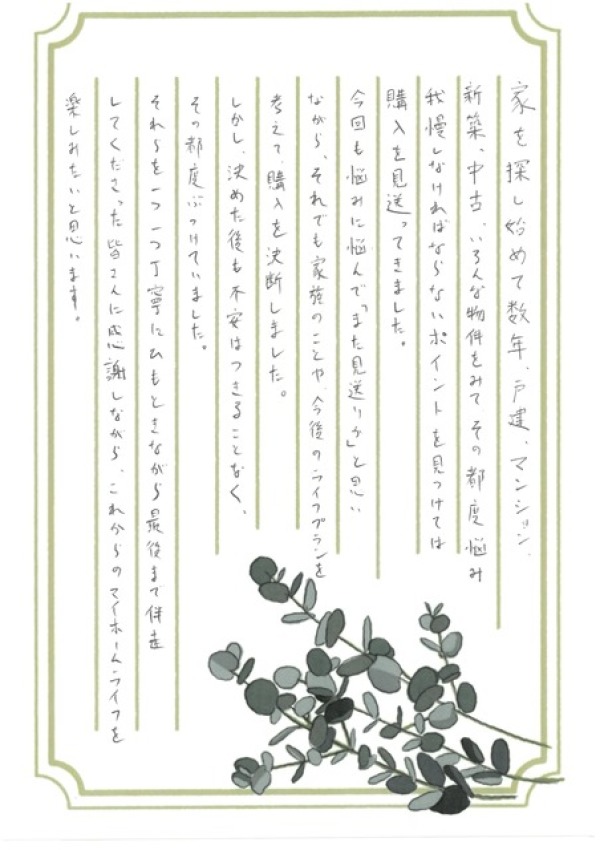 家を探し始めて数年、戸建、マンション、
新築、中古、いろんな物件をみて、その都度悩み
我慢しなければならないポイントを見つけては
購入を見送ってきました。
今回も悩みに悩んで「また見送りか」と思い
ながら、それでも家族のことや、今後のライフプランを
考えて、購入を決断しました。
しかし、決めた後も不安はつきることなく、
その都度ぶつけていました。
それらを一つ一つ丁寧にひもときながら最後まで伴走
してくださった皆さんに感謝しながら、これからのマイホームライフを
楽しみたいと思います。